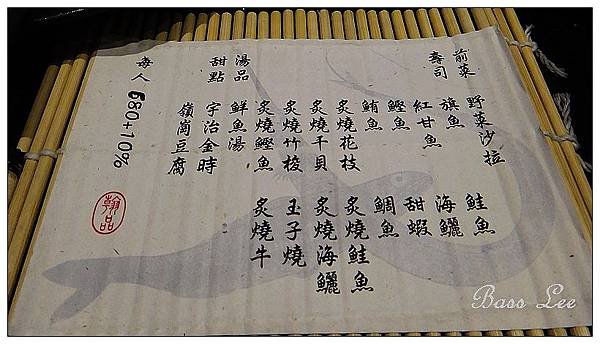 前菜 野菜沙拉
壽司 旗魚 鮭魚
紅甘魚 海鱺
鰹魚 甜蝦
鮪魚 鯛魚
炙燒花枝 炙燒鮭魚
炙燒干貝 炙燒海鱺
炙燒竹梭 玉子燒
炙燒鰹魚 炙燒牛
湯品 鮮魚湯
甜點 宇治金時
嶺崗豆腐
每人 680+10%
翰品
Bass Lee